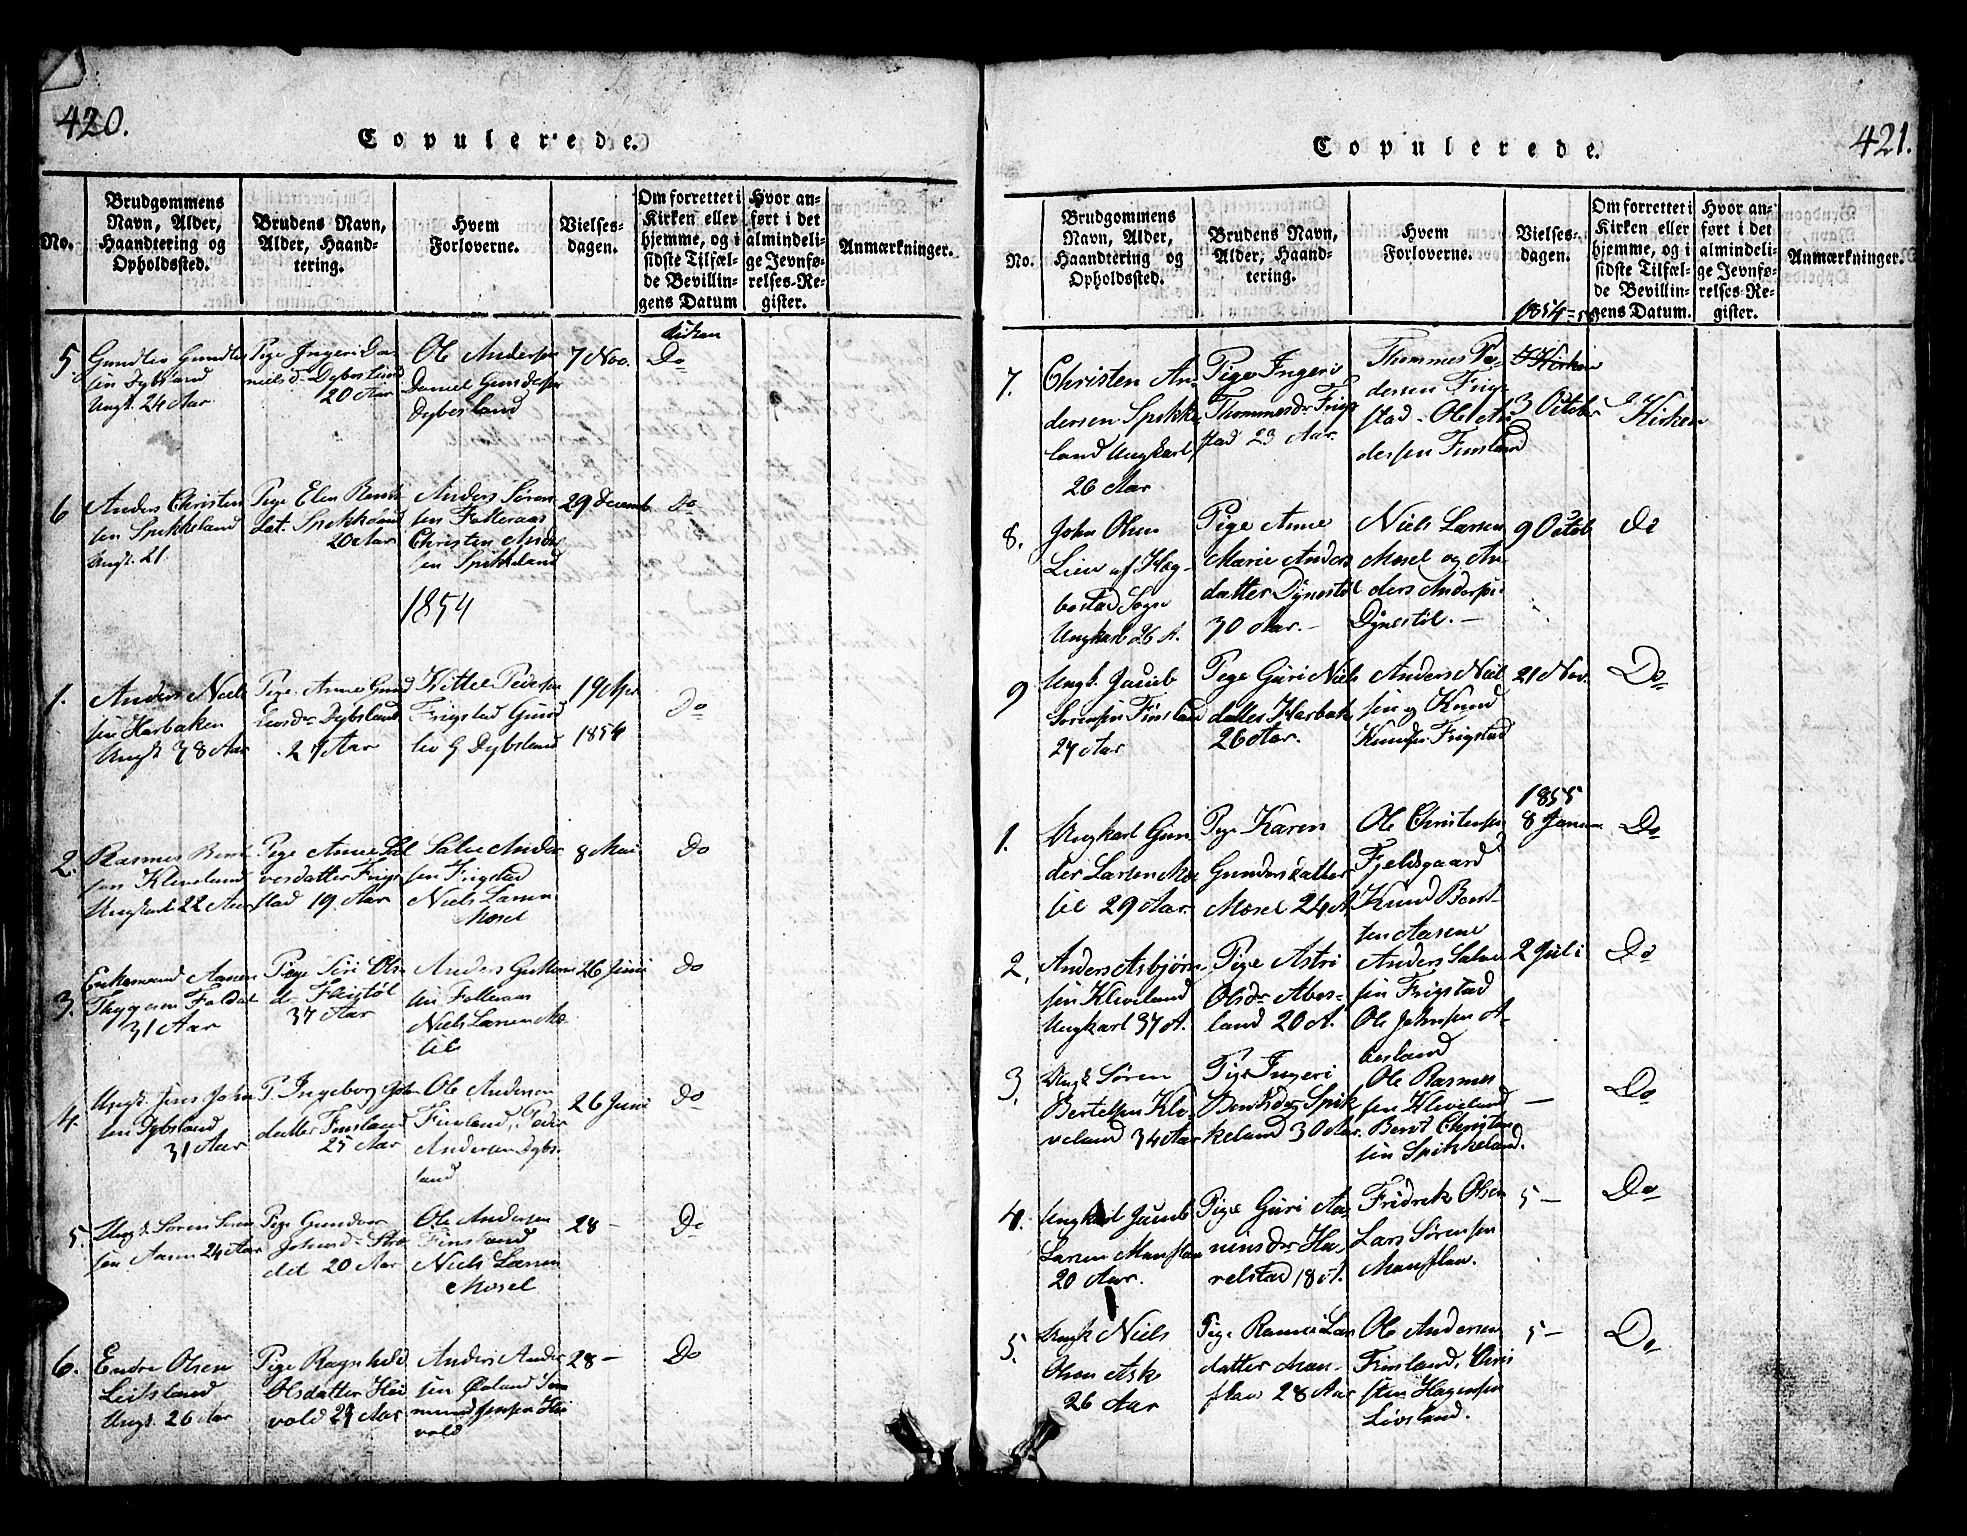 420.
Copulerede.
No.
Brudgommens
Navn, Alder,
Haandtering og
Opholdssted.
Brudens Navn,
Alder, Haand-
tering.
Hvem
Forloverne.
Vielses-
dagen.
Om forrettet i
Kirken eller
hjemme, og i
sidste Tilfæl-
de Bevillin-
gens Datum
Hvor an-
ført i det
almindeli-
ge Jevnfø-
relses-Re-
gister.
Anmærkninger.
5.
Gundlev Gundlev
sen Dybsland
Ungk. 24 Aar
Pige Ingeri Da-
nielsd. Dybesland
20 Aar
Ole Andersen
Daniel Gundersen
Dybesland
7 Nov.
Kirken
Do
6
Anders Christen
sen Spikkeland
Ungk. 21.
Pige Elen Bents
dat. Spikkeland
20 Aar
Anders Søren
sen Falleraas
Christen Ander
sen Spikkeland
29 Decemb
Do
1854
1.
Anders Niels
sen Harbaken
Ungk. 38 Aar
Pige Anne Gund
levsdr Dybsland
27 Aar
Kittel Pedersen
Frigstad Gund
lev G Dybsland
19 Apr
1854
Do
2.
Rasmus Bent
sen Kleveland
Ungkarl 22 Aar
Pige Anne Sal
vesdatter Frig
stad 19 Aar
Salve Ander
sen Frigstad
Niels Larsen
Mosel
8 Mai
Do
3.
Enkemand Aanen
Thygesen Faldal
31 Aar
Pige Siri Ols
d.
37 Aar
Anders Guttorm
sen Falleraas
Niels Larsen Mo
sel
26 Juni
Do
4.
Ungk. Jens John
sen Dybsland
31 Aar
P. Ingeborg John
datter Finsland
25 Aar
Ole Andersen
Finsland, Peder
Andersen Dybs
land
26 Juni
Do
5.
Ungk Søren Søren
sen Aasen 24 Aar
Pige Gundvor
det 20 Aar
Ole Andersen
Finsland
Niels Larsen
Mosel
28 –
Do
6.
Endre Olsen
Leitsland
Ungk. 26 Aar
Pige Ragnhild
Olsdatter Hei
vold 21 Aar
Anders Ander
sen
vold
28 –
Do
421.
Copulerede.
No.
Brudgommens
Navn, Alder,
Haandtering og
Opholdssted.
Brudens Navn,
Alder, Haand-
tering.
Hvem
Forloverne.
Vielses-
dagen.
1854
Om forrettet i
Kirken eller
hjemme, og i
sidste Tilfæl-
de Bevillin-
gens Datum.
Hvor an-
ført i det
almindeli-
ge Jevnfø-
relses-Re-
gister.
Anmærkninger.
7.
Christen An-
dersen Spikke
land Ungkarl,
26 Aar
Pige Ingeri
Thommesdr Frig
stad 23 Aar.
Thommes Pe-
dersen Frig-
stad - Ole An-
dersen Finsland
3 October
Kirken
8.
John Olsen
Lien af Hæg-
bostad Sogn
Ungkarl 26 A.
Pige Anne
Marie Anders
datter Dynestøl
30 Aar. –
Niels Larsen
Mosel og An-
ders Andersen
Dynestøl. –
9 Octob
Do
9
Ungk. Jacob
Sørensen Finsland
27 Aar
Pige Guri Niels
datter Harbak
26 Aar.
Anders Niel
sen og Knud
Knudsen Frigstad
21 Nov.
Do
1855
1.
Ungkarl Gun
der Larsen Mo
sel 29 Aar.
Pige Karen
Gundersdatter
Mosel 24 A.
Ole Christensen
Fjeldsgaard
Knud Bent-
sen Aasene
8 Januar
Do
2.
Anders Asbjørn
sen Kleveland
Ungkarl 37 A.
Pige Astri
Olsdr Abes-
land 20 A.
Anders Salve
sen Frigstad
Ole Johnsen A-
besland
2 Juli
Do
3.
Ungk Søren
Bertelsen Kle
veland 34 Aar
Pige Ingeri
Bentsdr Spik
keland 30 Aar.
Ole Rasmus
sen Kleveland
Bent Christen
sen Spikkeland.
—
Do
4.
Ungkarl Jacob
Larsen Manflau
20 Aar.
Pige Guri Aa
nensdr Ha-
relstad 18 A.
Fridrek Olsen
Lars Sørensen
Manflau.
5 –
Do
5.
Ungk Niels
Olsen Ask
26 Aar
Pige Lars
datter Man-
flau 28 Aar
Ole Andersen
Finsland, Chris
sten Hagensen
Livsland.
5 –
Do